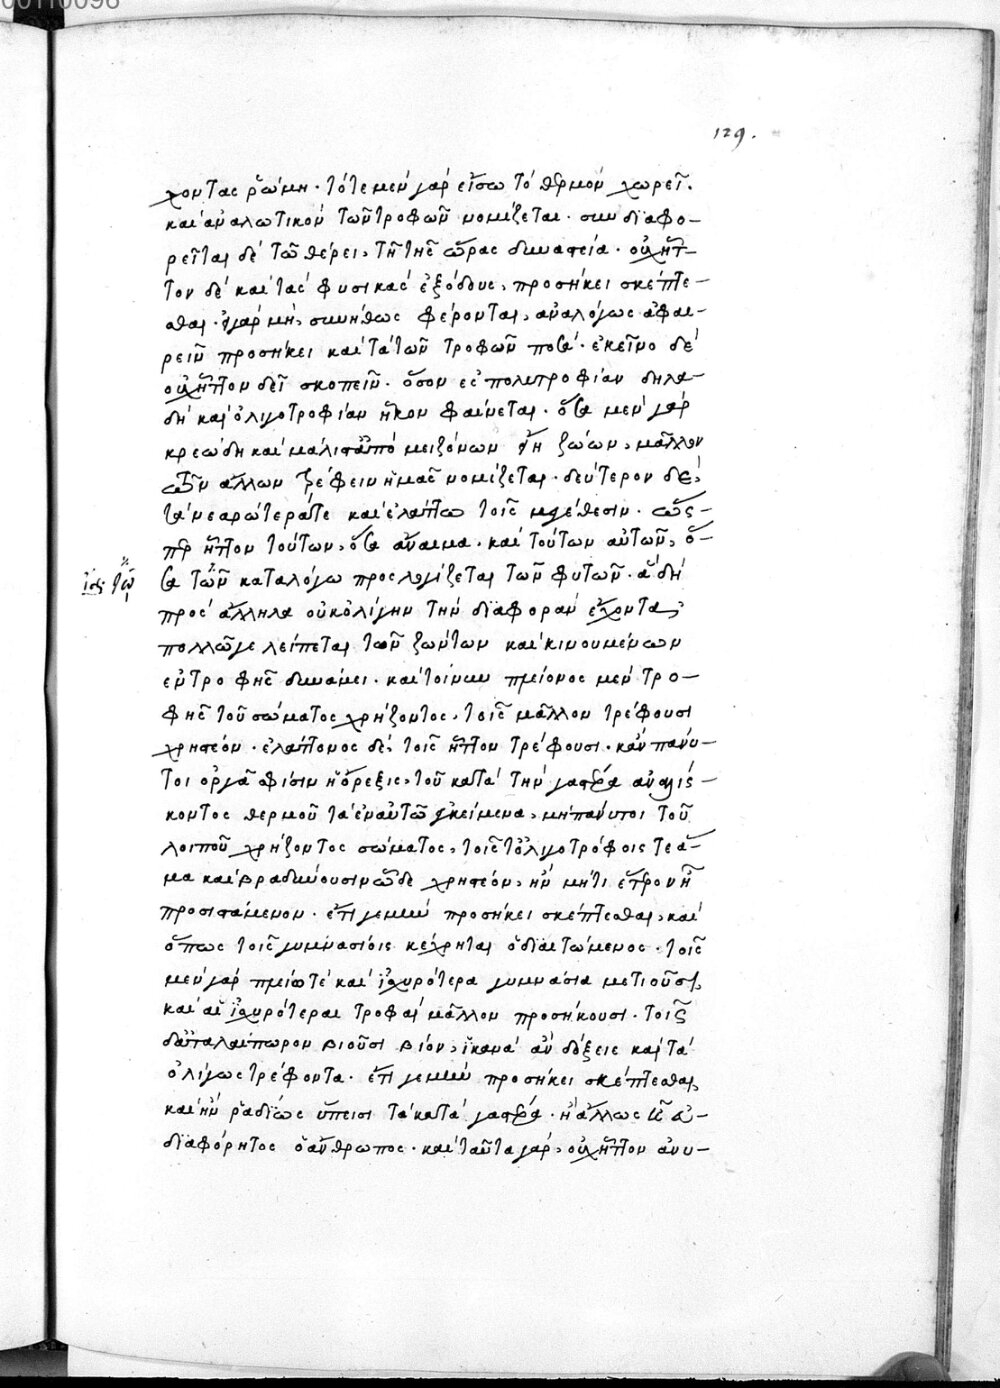 129.
χοντας ῥώμη. τότε μὲν γὰρ εἴσω τὸ θερμὸν χωρεῖ.
καὶ ἀναλωτικὸν τῶν τροφῶν νομίζεται. συνδιαφο-
ρεῖται δὲ τῶ θέρει, τῆ τῆς ὥρας δυναστεία. οὐχ ἧτ-
τον δὲ καὶ τὰς φυσικὰς ἐξόδους, προσήκει σκέπτε-
σθαι. γὰρ μὴ, συνήθως φέρονται, ἀναλόγως ἀφαι-
ρεῖν προσήκει καὶ τὰ τῶν τροφῶν ποσά. ἐκεῖνο δὲ
οὐχ ἧττον δεῖ σκοπεῖν. ὅσον ἐς πολυτροφίαν δηλα-
δὴ καὶ ὀλιγοτροφίαν ἧκον φαίνεται. ὅσα μὲν γὰρ
κρεώδη καὶ μάλιστα ἀπὸ μειζόνων ζώων, μᾶλλον
τῶν ἄλλων τρέφειν ἡμᾶς νομίζεται. δεύτερον δὲ,
τὰ νεαρώτερά τε καὶ ἐλάττω τοῖς μεγέθεσιν. ὥς-
περ ἧττον τούτων, ὅσα ἄναιμα. καὶ τούτων αὐτῶν, ὅ-
σα τῶν καταλόγω προσλογίζεται τῶν φυτῶν. ἃ δὴ
πρὸς ἄλληλα οὐκ ὀλίγην τὴν διαφορὰν ἔχοντα,
πολλῶ γε λείπεται τῶν ζώντων καὶ κινουμένων
ἐν τροφῆς δυνάμει. καὶ τοίνυν πλείονος μὲν τρο-
φῆς τοῦ σώματος χρήζοντος, τοῖς μᾶλλον τρέφουσι
χρηστέον. ἐλάττονος δὲ, τοῖς ἧττον τρέφουσι. κἂν πάνυ-
τοι ὀργᾶ φίσιν ἡ ὄρεξις, τοῦ κατὰ τὴν γαστέρα ἀναλίς-
κοντος θερμοῦ τὰ ἐν αὐτῶ ἐγκείμενα, μὴ πάνυτοι τοῦ
λοιποῦ χρήζοντος σώματος, τοῖς ὀλιγοτρόφοις τε ἅ-
μα καὶ βραδύνουσιν ὧδε χρηστέον, ἢν μή τι ἕτερον ἦ
προσιστάμενον. ἔτι γεμὴν προσήκει σκέπτεσθαι, καὶ
ὅπως τοῖς γυμνασίοις κέχρηται ὁ διαιτώμενος. τοῖς
μὲν γὰρ πλείω τὲ καὶ ἰσχυρότερα γυμνάσια μετιοῦσι,
καὶ αἱ ἰσχυρότεραι τροφαὶ μᾶλλον προσήκουσι. τοῖς
δ' ἀταλαίπωρον βιοῦσι βίον, ἱκανὰ ἂν δόξειε καὶ τὰ
ὀλίγως τρέφοντα. ἔτι γεμὴν προσήκει σκέπτεσθαι,
καὶ ἢν ῥαδίως ὕπεισι τὰ κατὰ γαστέρα. ἢ ἄλλως ἀ-
διαφόρητος ὁ ἄνθρωπος. καὶ ταῦτα γὰρ, οὐχ ἧττον ἀνυ-